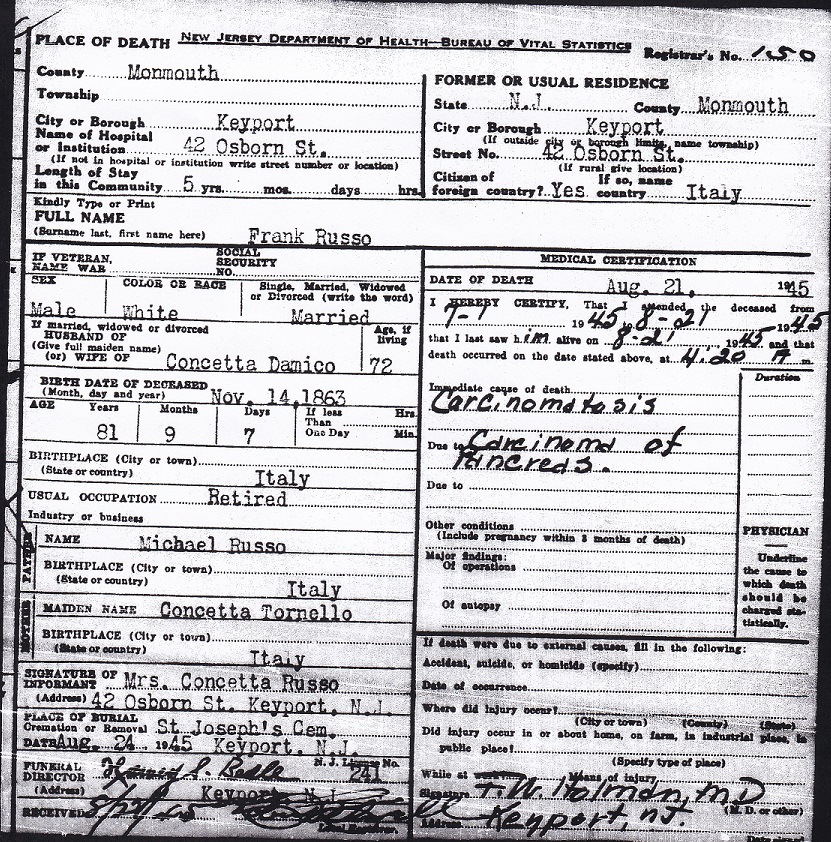 PLACE OF DEATH NEW JERSEY DEPARTMENT OF HEALTH—BUREAU OF VITAL STATISTICS Registrar's No. 150
County Monmouth
Township
City or Borough Keyport
Name of Hospital
or Institution 42 Osborn St.
(If not in hospital or institution write street number or location)
Length of Stay
in this Community 5 yrs. mos. days hrs.
FORMER OR USUAL RESIDENCE
State N.J. County Monmouth
City or Borough Keyport
(If outside city or borough limits, name township)
Street No. 42 Osborn St.
(If rural give location)
Citizen of If so, name
foreign country? Yes country Italy
Kindly Type or Print
FULL NAME
(Surname last, first name here) Frank Russo
IF VETERAN,
NAME WAR
SOCIAL
SECURITY
NO.
SEX COLOR OR RACE Single, Married, Widowed
or Divorced (write the word)
Male White Married
If married, widowed or divorced
HUSBAND OF
(Give full maiden name)
(or) WIFE OF Concetta Damico
Age, if
living
72
BIRTH DATE OF DECEASED
(Month, day and year) Nov. 14, 1863
AGE Years Months Days If less Hrs.
Than
One Day Min.
81 9 7
BIRTHPLACE (City or town)
(State or country) Italy
USUAL OCCUPATION Retired
Industry or business
FATHER
NAME Michael Russo
BIRTHPLACE (City or town)
(State or country) Italy
MOTHER
MAIDEN NAME Concetta Tornello
BIRTHPLACE (City or town)
(State or country) Italy
SIGNATURE OF
INFORMANT Mrs. Concetta Russo
(Address) 42 Osborn St. Keyport, N.J.
PLACE OF BURIAL
Cremation or Removal St. Joseph's Cem.
DATE Aug. 24 1945 Keyport, N.J.
FUNERAL
DIRECTOR
N.J. License No.
241
(Address) Keyport, N.J.
RECEIVED
Local Registrar.
MEDICAL CERTIFICATION
DATE OF DEATH Aug. 21, 1945
I HEREBY CERTIFY, That I attended the deceased from
7-1 1945 to 8-21 1945
that I last saw him alive on 8-21 1945 and that
death occurred on the date stated above, at 4:20 A m.
Duration
Immediate cause of death
Carcinomatosis
Due to Carcinoma of
Pancreas.
Due to
Other conditions
(Include pregnancy within 3 months of death)
Major findings:
Of operations
Of autopsy
PHYSICIAN
Underline
the cause to
which death
should be
charged sta-
tistically.
If death were due to external causes, fill in the following:
Accident, suicide, or homicide (specify)
Date of occurrence
Where did injury occur?
(City or town) (County) (State)
Did injury occur in or about home, on farm, in industrial place, in
public place?
(Specify type of place)
While at work Means of injury
Signature T. W. Holman, MD
(M. D. or other)
Address Keyport, NJ.
Date signed